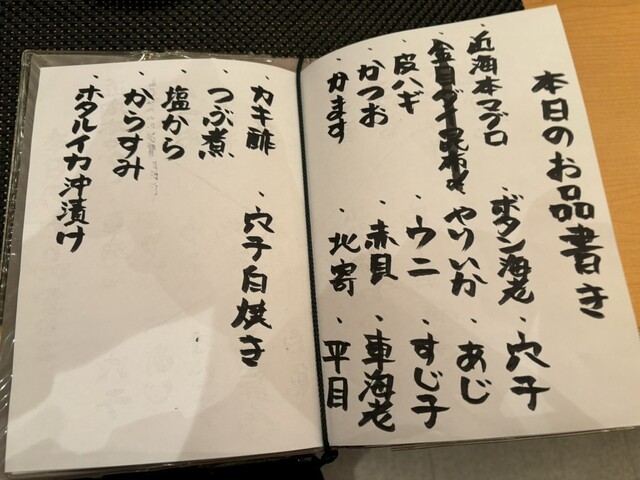 本日のお品書き
・近海本マグロ ・ボタン海老 ・穴子
・金目ダイ昆布〆 ・やりいか ・あじ
・皮ハギ ・ウニ ・すじ子
・かつお ・赤貝 ・車海老
・かます ・北寄 ・平目
・カキ酢 ・穴子白焼き
・つぶ煮
・塩から
・からすみ
・ホタルイカ沖漬け